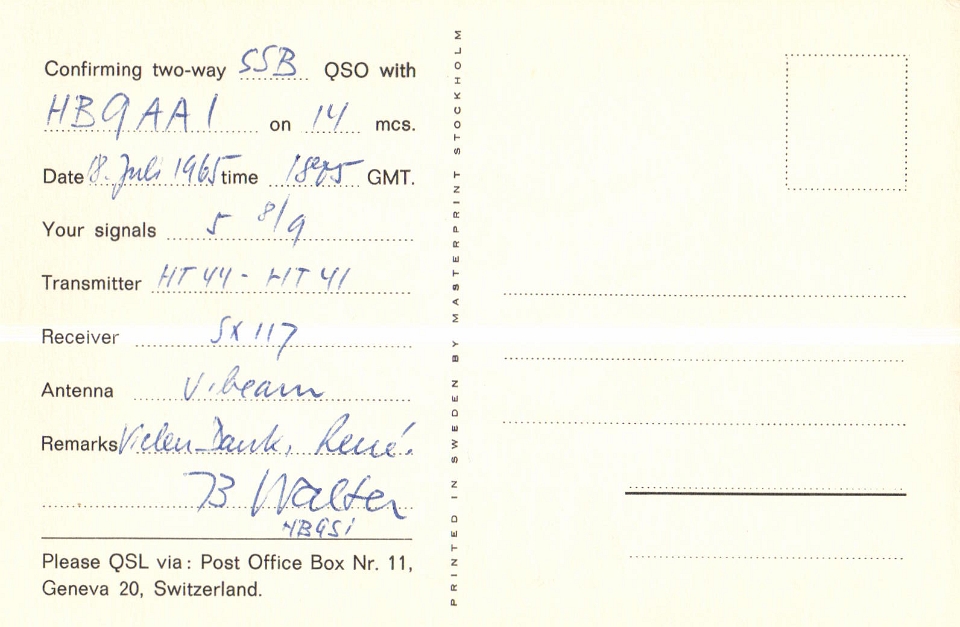 Confirming two-way SSB QSO with
HB9AAI on 14 mcs.
Date 18. Juli 1965 time GMT.
Your signals 5 8/9
Transmitter HT 44 - HT 41
Receiver SX 117
Antenna V-beam
Remarks Vielen Dank, René.
73 Walter
HB9SI
Please QSL via: Post Office Box Nr. 11,
Geneva 20, Switzerland.
PRINTED IN SWEDEN BY MASTERPRINT STOCKHOLM